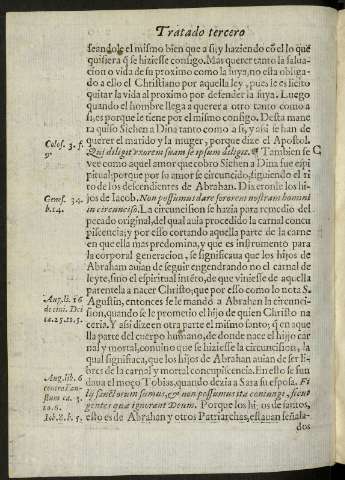 Tratado tercero
seandole el mismo bien que a si, y haziendo cõ el lo que
quisiera q̃ se hiziesse consigo. Mas querer tanto la salua-
cion o vida de su proximo como la suya, no esta obliga-
do a ello el Christiano por aquella ley, pues le es licito
quitar la vida al proximo por defender la suya. Luego
quando el hombre llega a querer a otro tanto como a
si, es porque le tiene por el mismo consigo. Desta mane
ra quiso Sichen a Dina tanto como a si, y assi se han de
querer el marido y la muger, porque dize el Apostol.
Colos. 3. f.
9.
Qui diligit vxorem suam se ipsum diligit. ¶ Tambien se C
vee como aquel amor que cobro Sichen a Dina fue espi
ritual: porque por su amor se circuncido, siguiendo el ri
to de los descendientes de Abrahan. Dixeronle los hi-
Genes. 34.
b. 14.
jos de Iacob. Non possumus dare sororem nostram homini
incircunciso. La circuncision se hazia para remedio del
pecado original, del qual auia procedido la carnal concu
piscencia; y por esso cortando aquella parte de la carne
en que ella mas predomina, y que es instrumento para
la corporal generacion, se significaua que los hijos de
Abrahan auian de seguir engendrando no el carnal de
leyte, sino el espiritual intẽto, de que viniesse de aquella
parentela a nacer Christo, que por esso como lo nota S.
Aug. li. 16
de ciui. Dei
ca. 25. 12. 5.
Agustin, entonces se le mandò a Abrahan la circunci-
sion, quando se le prometio el hijo de quien Christo na
ceria. Y assi dize en otra parte el mismo santo; q̃ en aque
lla parte del cuerpo humano, de donde nace el hijo car
nal y mortal, conuino que se hiziesse la circuncision, la
qual significaua, que los hijos de Abrahan auian de ser li-
Aug. lib. 6
contra Fau-
stum ca. 3.
to. 6.
bres de la carnal y mortal concupiscencia. En esto se fun
daua el moço Tobias, quando dezia a Sara su esposa. Fi
lij sanctorum sumus, & non possumus ita coniungi, sicut
gentes quæ ignorant Deum. Porque los hijos de santos,
Tob. 8. b. 5.
esto es de Abrahan y otros Patriarchas, estauan señala-
dos